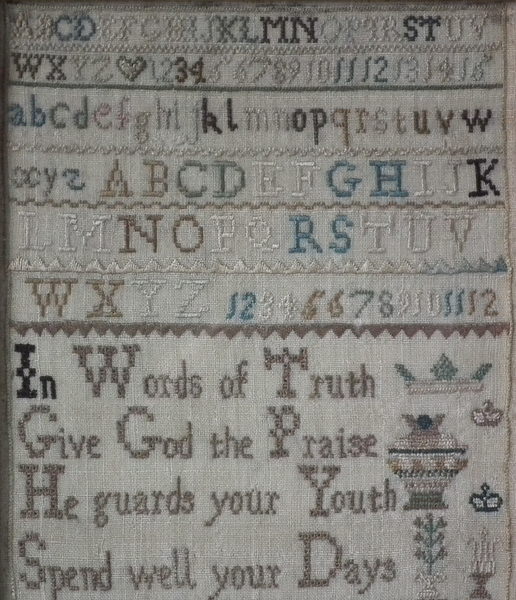 ABCDEFGHIJKLMNOPQRSTUV
WXYZ 1234 5 6 7 8 9 10 11 12 13 14 15
abcdefghijklmnopqrstuvw
xyz ABCDEFGHIJK
LMNOPQRSTUV
WXYZ 12345 6 7 8 9 10 11 12
In Words of Truth
Give God the Praise
He guards your Youth
Spend well your Days